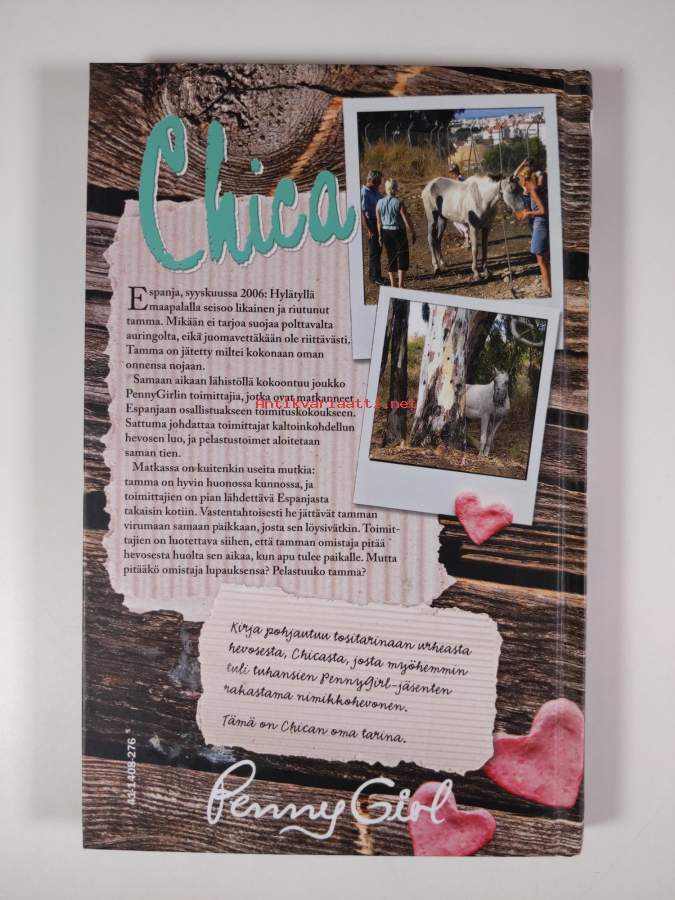 Chica
Espanja, syyskuussa 2006: Hylätyllä
maapalalla seisoo likainen ja riutunut
tamma. Mikään ei tarjoa suojaa polttavalta
auringolta, eikä juomavettäkään ole riittävästi.
Tamma on jätetty miltei kokonaan oman
onnensa nojaan.
Samaan aikaan lähistöllä kokoontuu joukko
PennyGirlin toimittajia, jotka ovat matkanneet
Espanjaan osallistuakseen toimituskokoukseen.
Sattuma johdattaa toimittajat kaltoinkohdellun
hevosen luo, ja pelastustoimet aloitetaan
saman tien.
Matkassa on kuitenkin useita mutkia:
tamma on hyvin huonossa kunnossa, ja
toimittajien on pian lähdettävä Espanjasta
takaisin kotiin. Vastentahtoisesti he jättävät tamman
virumaan samaan paikkaan, josta sen löysivätkin. Toimit-
tajien on luotettava siihen, että tamman omistaja pitää
hevosesta huolta sen aikaa, kun apu tulee paikalle. Mutta
pitääkö omistaja lupauksensa? Pelastuuko tamma?
Kirja pohjautuu tositarinaan urheasta
hevosesta, Chicasta, josta myöhemmin
tuli tuhansien PennyGirl-jäsenten
rakastama nimikkohevonen.
Tämä on Chican oma tarina.
Penny Girl
41-1408-276
Antikvariaatti.net